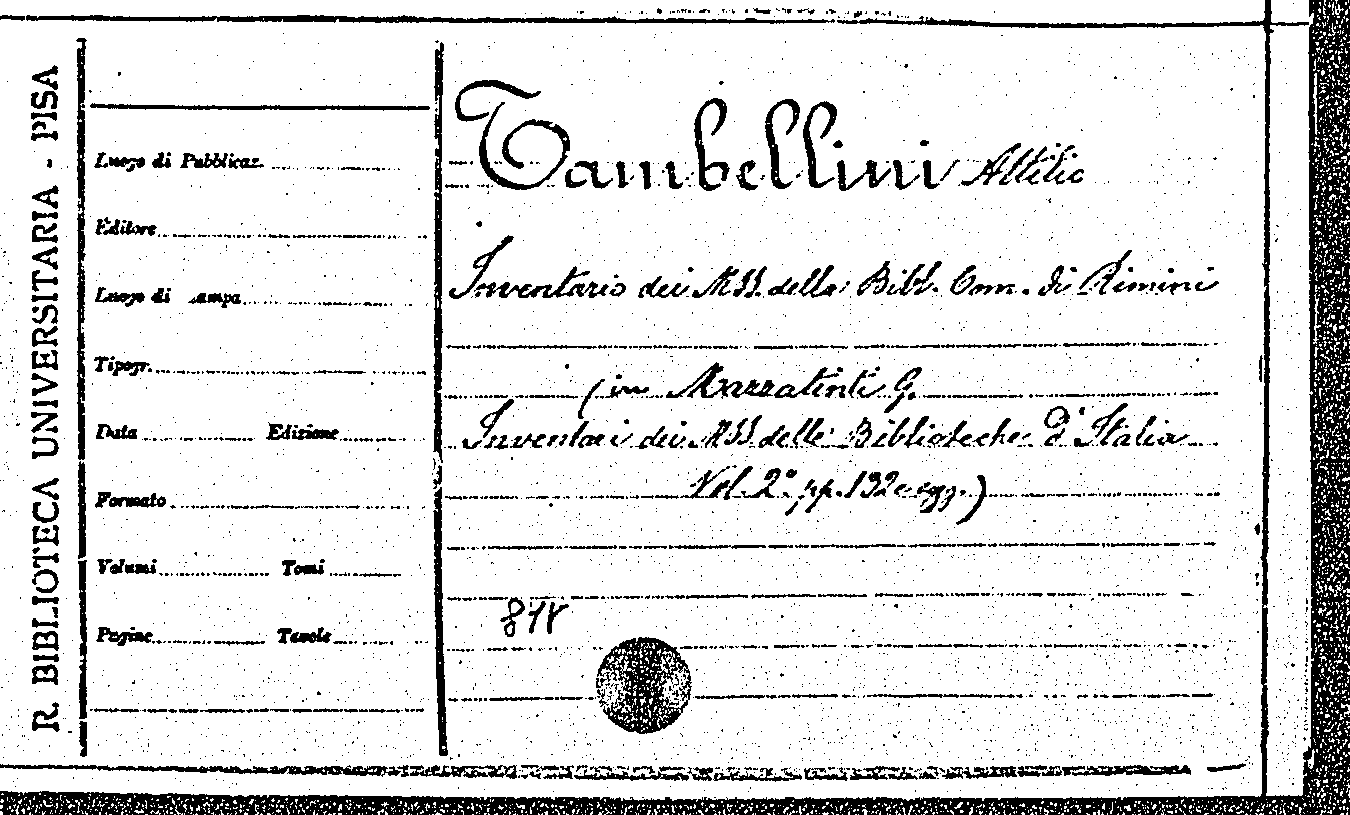 R. BIBLIOTECA UNIVERSITARIA - PISA
Luogo di Pubblicaz.
Editore
Luogo di
Tipogr.
Data Edizione
Formato
Volumi Tomi
Pagine Tavole
Tambellini Attilio
Inventario dei MSS. della Bibl. Com. di Rimini
(in Mazzatinti G.
Inventari dei MSS delle Biblioteche d'Italia
Vol. 2° pp. 132 e sgg.)